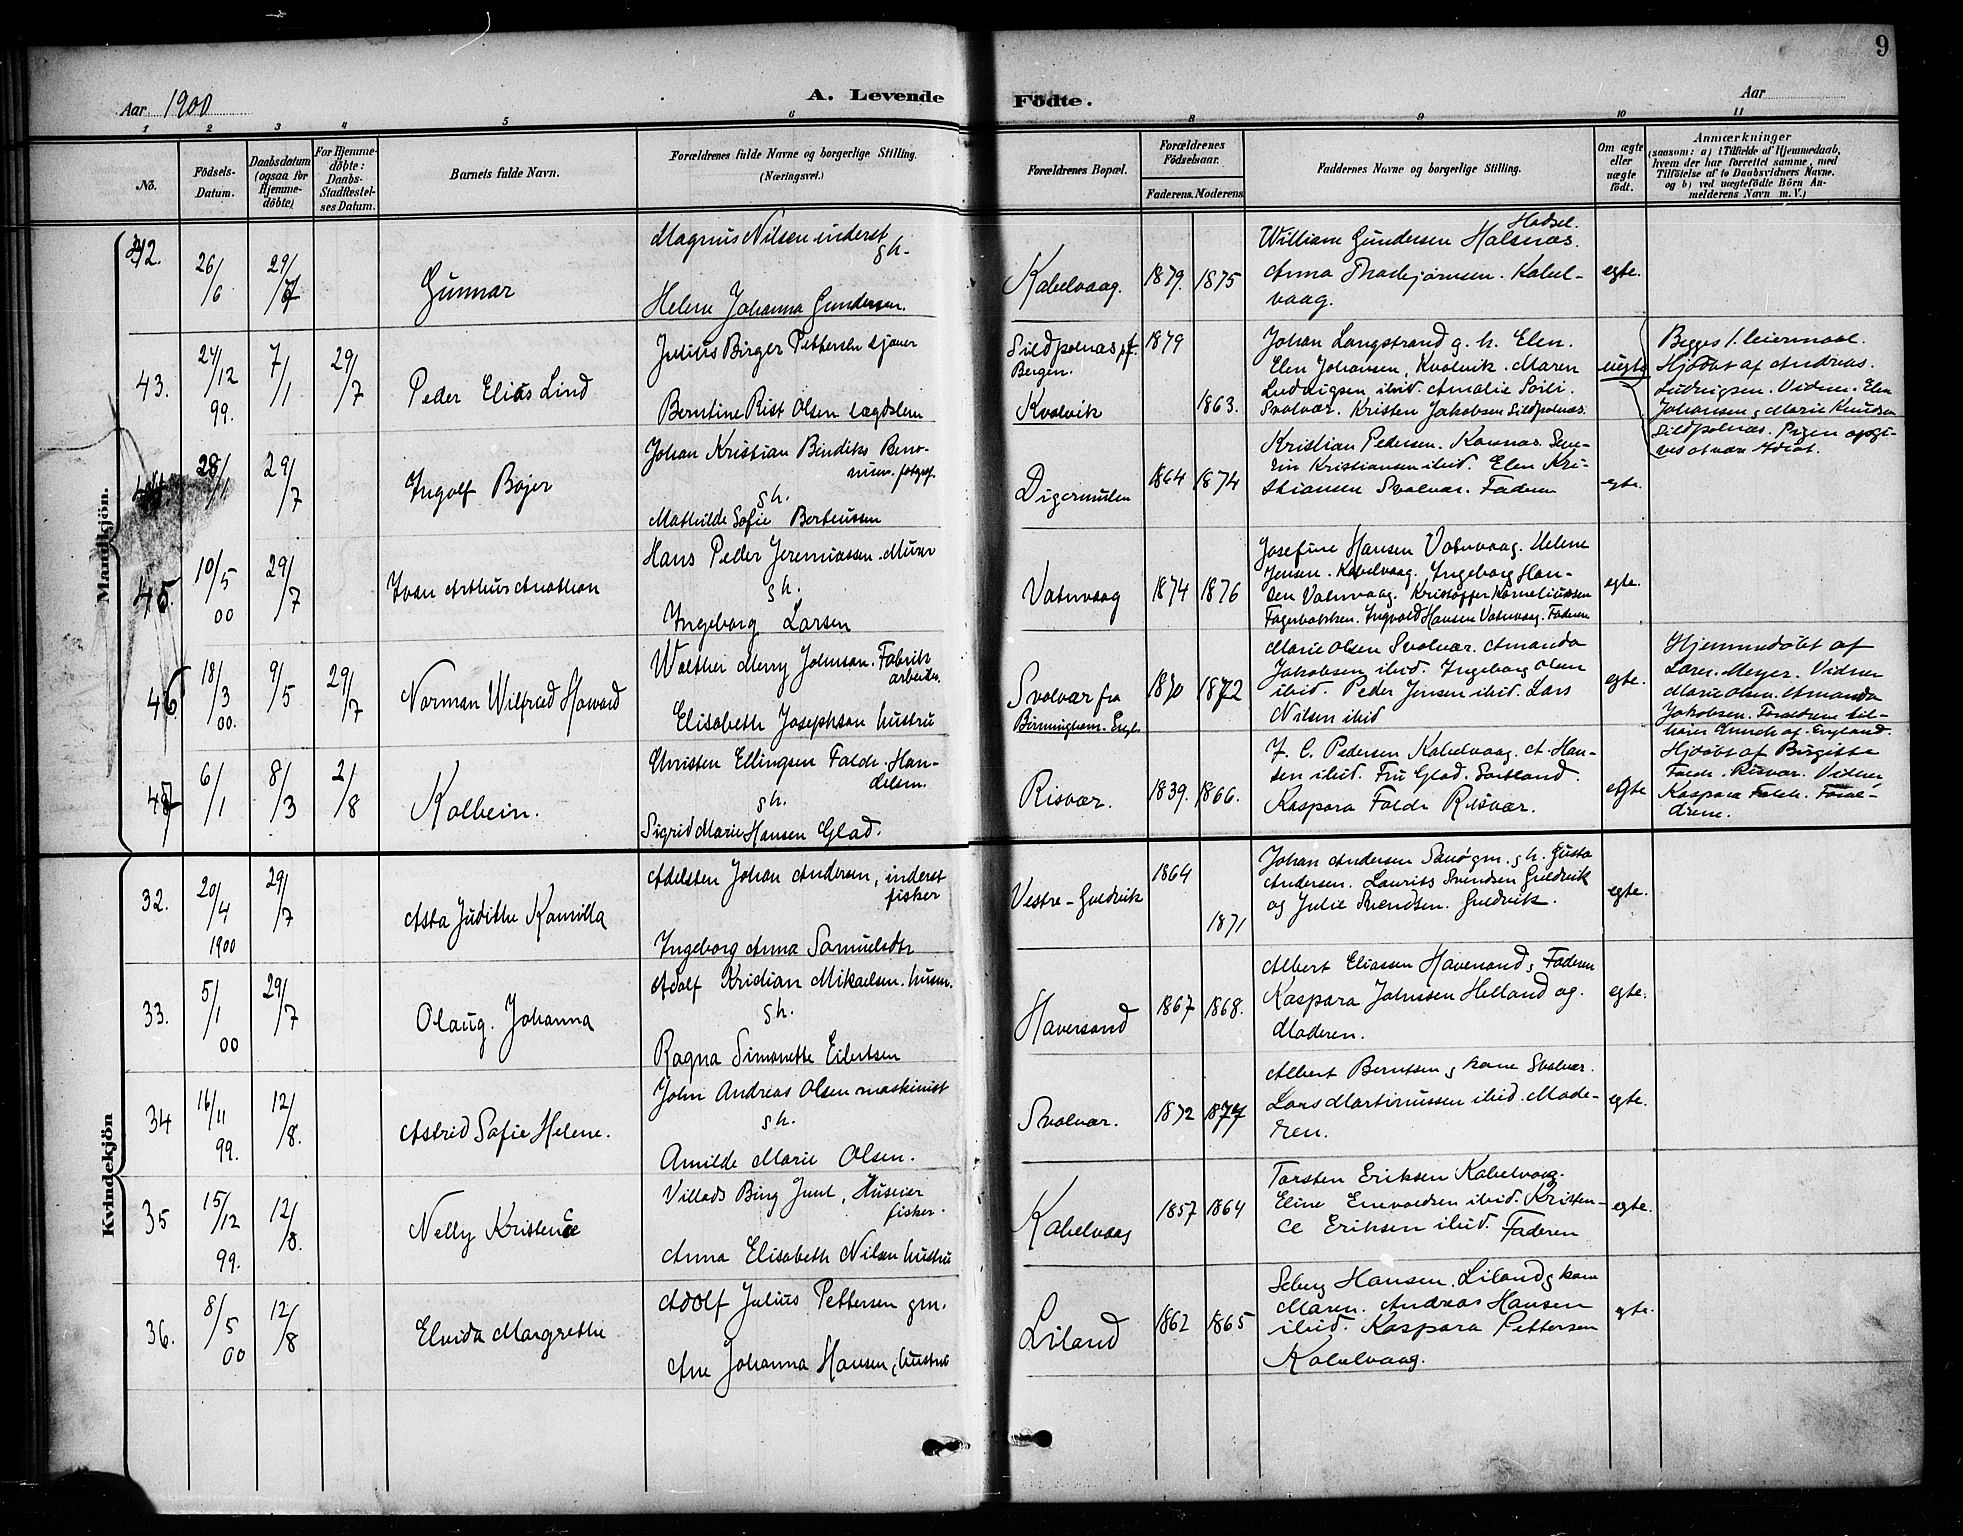 9
Aar 1900
A. Levende Födte.
Aar
1 2 3 4 5 6 8 9 10 11
No.
Födsels-
Datum.
Daabsdatum
(ogsaa for
Hjemme-
döbte)
For Hjemme-
döbte:
Daabs-
Stadfæstel-
ses Datum.
Barnets fulde Navn.
Forældrenes fulde Navne og borgerlige Stilling.
(Næringsvei.)
Forældrenes Bopæl.
Forældrenes
Födselsaar.
Faderens. Moderens.
Faddernes Navne og borgerlige Stilling.
Om ægte
eller
uægte
födt.
Anmærkninger
(saasom: a) i Tilfælde af Hjemmedaab,
hvem der har forrettet samme, med
Tilföielse af to Daabsvidners Navne,
og b) ved uægtefödte Börn An-
melderens Navn m.V.)
Mandkjön.
42.
26/6
29/7
Gunnar
Magnus Nilsen inderst
gh.
Helene Johanna Gundersen.
Kabelvaag.
1879. 1875
Hadsel.
William Gundersen Halsnæs.
Anna Thorbjørnsen. Kabel-
vaag.
egte.
43.
27/12
99.
7/1
29/7
Peder Elias Lind
Julius Birger Pettersen sjøver
Berntine Rist Olsen lægdslem
Sildpolnæs f.
Bergen.
Kvolvik
1879
1863.
Johan Langstrand g. h. Elen.
Elen Johansen, Kvolvik. Maren
Ludvigsen ibid. Amalie
Svolvær. Kristen Jakobsen Sildpolnæs.
uegte
Begges 1. leiermaal.
Hjdøbt af Andreas
Ludvigsen. Vidner. Elen
Johansen, Marie Knudsen
Sildpolnæs. Pigen opgi-
ves at være Idiot.
28/1
29/7
Ingolf Bojer
Johan Kristian Bendiks Beno-
nisen. fotograf.
gh.
Mathilde Sofie Berteussen
Digermulen
1864 1874
Kristian Pedersen. Kornæs. Sen-
rin Kristiansen ibid. Elen Kri-
stiansen Svolvær. Faderen
egte.
45.
10/5
00
29/7
Ivan Arthur Anathon
Hans Peder Jeremiassen. Murer
gh.
Ingeborg Larsen
Vatnvaag
1874 1876
Josefine Hansen Vatnvaag. Helene
Jensen. Kabelvaag. Ingeborg Han-
sen Vatnvaag. Kristoffer Korneliussen
Fagerbakken. Ingvald Hansen Vatnvaag. Faderen
egte.
46
18/3
00.
9/5
29/7
Norman Wilfred Howard
Walther Merry Johnson. Fabrik
arbeider.
Elisabeth Josephson hustru
Svolvær fra
Birmingham. Engl.
1870 1872
Marie Olsen Svolvær. Amanda
Jakobsen ibid. Ingeborg Olsen
ibid. Peder Jensen ibid. Lars
Nilsen ibid
egte.
Hjemmedøbt af
Lars. Meyer. Vidner
Marie Olsen. Amanda
Jakobsen. Forældrene til-
hører Church of England.
47
6/1
8/3
2/8
Kolbein.
Christen Ellingsen Falch. Han-
delsm.
gh.
Sigrid Marie Hansen Glad.
Risvær.
1839. 1866.
J. C. Pedersen Kabelvaag. A. Han-
sen ibid. Fru Glad. Sortland.
Kaspara Falch Risvær.
egte
Hjdøbt af Birgitte
Falch. Risvær. Vidner,
Kaspara Falch. Foræl-
drene.
Kvindekjön
32.
20/4
1900
29/7
Asta Judithe Kamilla
Adelsten Johan Andersen, inderst
fisker
Ingeborg Anna Samuelsdtr
Vestre-Guldvik
1864
1871
Johan Andersen Sanø gm. g h. Gusta
Andersen. Laurits Svendsen Guldvik
og Julie Svendsen. Guldvik.
egte.
33.
5/1
00
29/7
Olaug. Johanna
Adolf Kristian Mikaelsen. husm.
gh.
Ragna Simonette Eilertsen
Haversand
1867 1868.
Albert Eliassen Haversand, Faderen
Kaspara Johnsen Helland og
Moderen.
egte.
34
16/11
99.
12/8.
Astrid Sofie Helene.
John Andreas Olsen maskinist
gh.
Amilde Marie Olsen.
Svolvær.
1872 1877
Albert Berntsen g kone Svolvær.
Lars Martinussen ibid. Mode-
ren.
egte.
35
15/12
99.
12/8.
Nelly Kristence
Villads Bing Juul, Huseier
fisker.
Anna Elisabeth Nilsen hustru
Kabelvaag
1857 1864
Torsten Eriksen Kabelvaag.
Eline Enevoldsen ibid. Kristen-
ce Eriksen ibid. Faderen
egte.
36.
8/5
00
12/8
Elvida Margrethe
Adolf Julius Pettersen gm.
Ane Johanna Hansen, hustru
Liland
1862 1865
Seberg Hansen. Liland g kone
Maren. Andreas Hansen
ibid. Kaspara Pettersen
Kabelvaag.
egte.